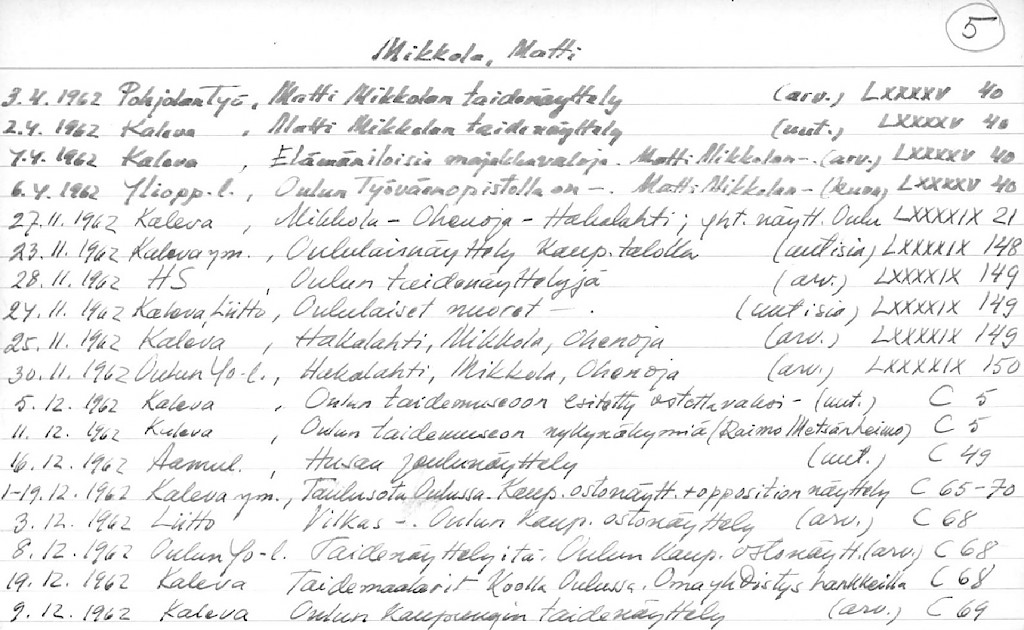 5
Mikkola, Matti
3.4.1962 Pohjolan Työ, Matti Mikkolan taidenäyttely (arv.) LXXXXV 40
2.4.1962 Kaleva , Matti Mikkolan taidenäyttely (uut.) LXXXXV 40
7.4.1962 Kaleva , Elämäniloisia majakkavaloja. Matti Mikkolan -. (arv.) LXXXXV 40
6.4.1962 Yliopp.l., Oulun Työväenopistolla on -. Matti Mikkolan - (kuva) LXXXXV 40
27.11.1962 Kaleva , Mikkola - Ohenoja - Hakalahti; yht. näytt. Oulu LXXXXIX 21
23.11.1962 Kaleva ym., Oululaisnäyttely Kaup.talolla (uutisia) LXXXXIX 148
28.11.1962 HS , Oulun taidenäyttelyjä (arv.) LXXXXIX 149
24.11.1962 Kaleva, Liitto, Oululaiset nuoret - . (uutisia) LXXXXIX 149
25.11.1962 Kaleva , Hakalahti, Mikkola, Ohenoja (arv.) LXXXXIX 149
30.11.1962 Oulun Yo-l., Hakalahti, Mikkola, Ohenoja (arv.) LXXXXIX 150
5.12.1962 Kaleva , Oulun taidemuseoon esitetty ostettavaksi - (uut.) C 5
11.12.1962 Kaleva , Oulun taidemuseon nykynäkymiä (Raimo Metsänheimo) C 5
16.12.1962 Aamul. , Husan joulunäyttely (uut.) C 49
1-19.12.1962 Kaleva ym., Taulusota Oulussa. Kaup. ostonäytt. + opposition näyttely C 65-70
3.12.1962 Liitto Vilkas -. Oulun Kaup. ostonäyttely (arv.) C 68
8.12.1962 Oulun Yo-l. Taidenäyttelyitä. Oulun Kaup. ostonäytt. (arv.) C 68
19.12.1962 Kaleva Taidemaalarit koolla Oulussa. Oma yhdistys hankkeilla C 68
9.12.1962 Kaleva Oulun Kaupungin taidenäyttely (arv.) C 69